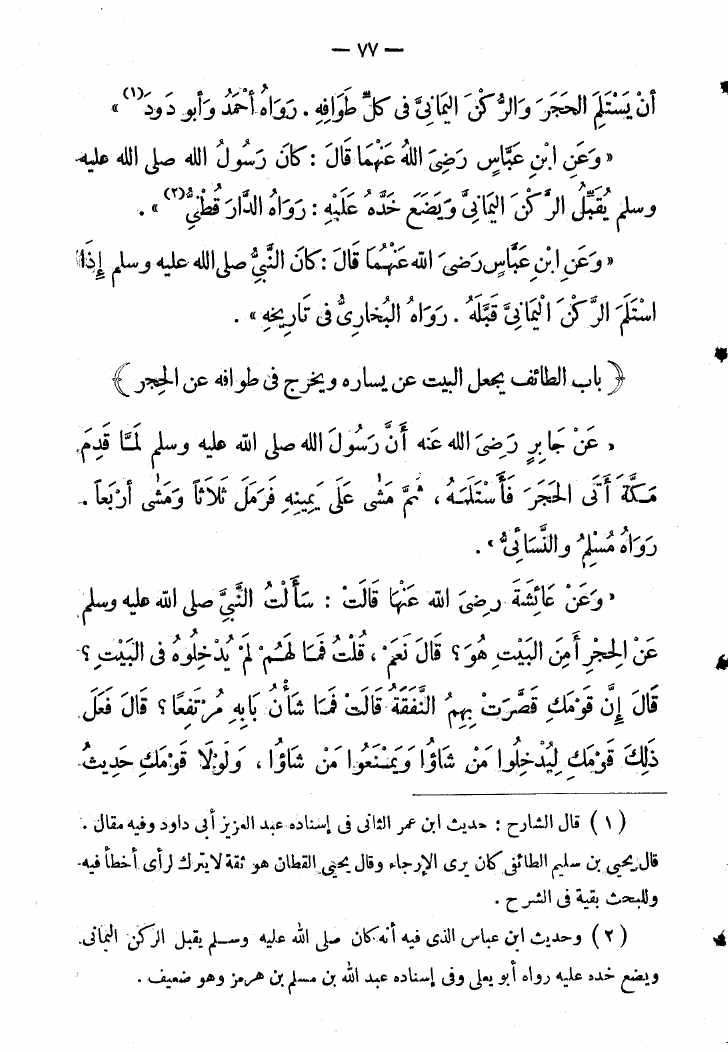 — ٧٧ —
أَنْ يَسْتَلِمَ الحَجَرَ وَالرُّكْنَ اليَمَانِيَّ فى كلِّ طَوَافِهِ . رَوَاهُ أَحْمَدُ وَأبو دَودَ(١) »
« وَعَنِ ابْنِ عَبَّاسٍ رَضِىَ اللهُ عَنْهُمَا قَالَ : كَانَ رَسُولُ الله صلى الله عليه
وسلم يُقَبِّلُ الرُّكْنَ اليَمَانِيَّ وَيَضَعَ خَدَّهُ عَلَيْهِ : رَوَاهُ الدَّارَ قُطْنِيُّ(٢) » .
« وَعَنِ ابْنِ عَبَّاسٍ رَضىَ اللّه عَنْهُمَا قَالَ : كَانَ النَّبِيُّ صلى الله عليه وسلم إِذَا
اسْتَلَمَ الرُّكْنَ الْيَمَانِيَّ قَبَّلَهُ . رَوَاهُ البُخارِيُّ فى تَارِيخِهِ » .
﴿ باب الطائف يجعل البيت عن يساره ويخرج فى طوافه عن الحِجر ﴾
« عَنْ جَابِرٍ رَضِىَ الله عنه أَنَّ رَسُولَ الله صلى اللّه عليه وسلم لَمَّا قَدِمَ
مَكَّةَ أَتَى الحَجَرَ فَأَسْتَلَمَهُ ، ثُمَّ مَشَى عَلَى يَمِينِهِ فَرَمَلَ ثَلَاثاً وَمَشَى أَرْبَعاً .
رَوَاهُ مُسْلِمٌ والنَّسَائِيُّ » .
« وَعَنْ عَائِشَةَ رضِىَ اللّه عَنْهَا قَالَتْ : سَأَلْتُ النَّبِيَّ صلى اللّه عليه وسلم
عَنْ الحِجْرِ أَمِنَ البَيْتِ هُوَ ؟ قَالَ نَعَمْ ، قُلْتُ فَمَا لَهُمْ لَمْ يُدْخِلُوهُ فى البَيْتِ ؟
قَالَ إِنَّ قَوْمَكِ قَصَّرَتْ بِهِمُ النَّفَقَةُ قَالَتْ فَمَا شَأْنُ بَابِهِ مُرْتَفِعًا ؟ قَالَ فَعَلَ
ذَلِكَ قَوْمَكِ لِيُدْخِلُوا مَنْ شَاؤُا وَيَمْنَعُوا مَنْ شَاؤُا ، وَلَوْلَا قَوْمَكِ حَدِيثُ
( ١ ) قال الشارح : حديث ابن عمر الثانى فى إسناده عبد العزيز أبى داود وفيه مقال .
قال يحيى بن سليم الطائفى كان يرى الإرجاء وقال يحيى القطان هو ثقة لا يترك لرأى أخطأ فيه
وللبحث بقية فى الشرح .
( ٢ ) وحديث ابن عباس الذى فيه أنه كان صلى الله عليه وسلم يقبل الركن اليمانى
ويضع خده عليه رواه أبو يعلى وفى إسناده عبد الله بن مسلم بن هرمز وهو ضعيف .